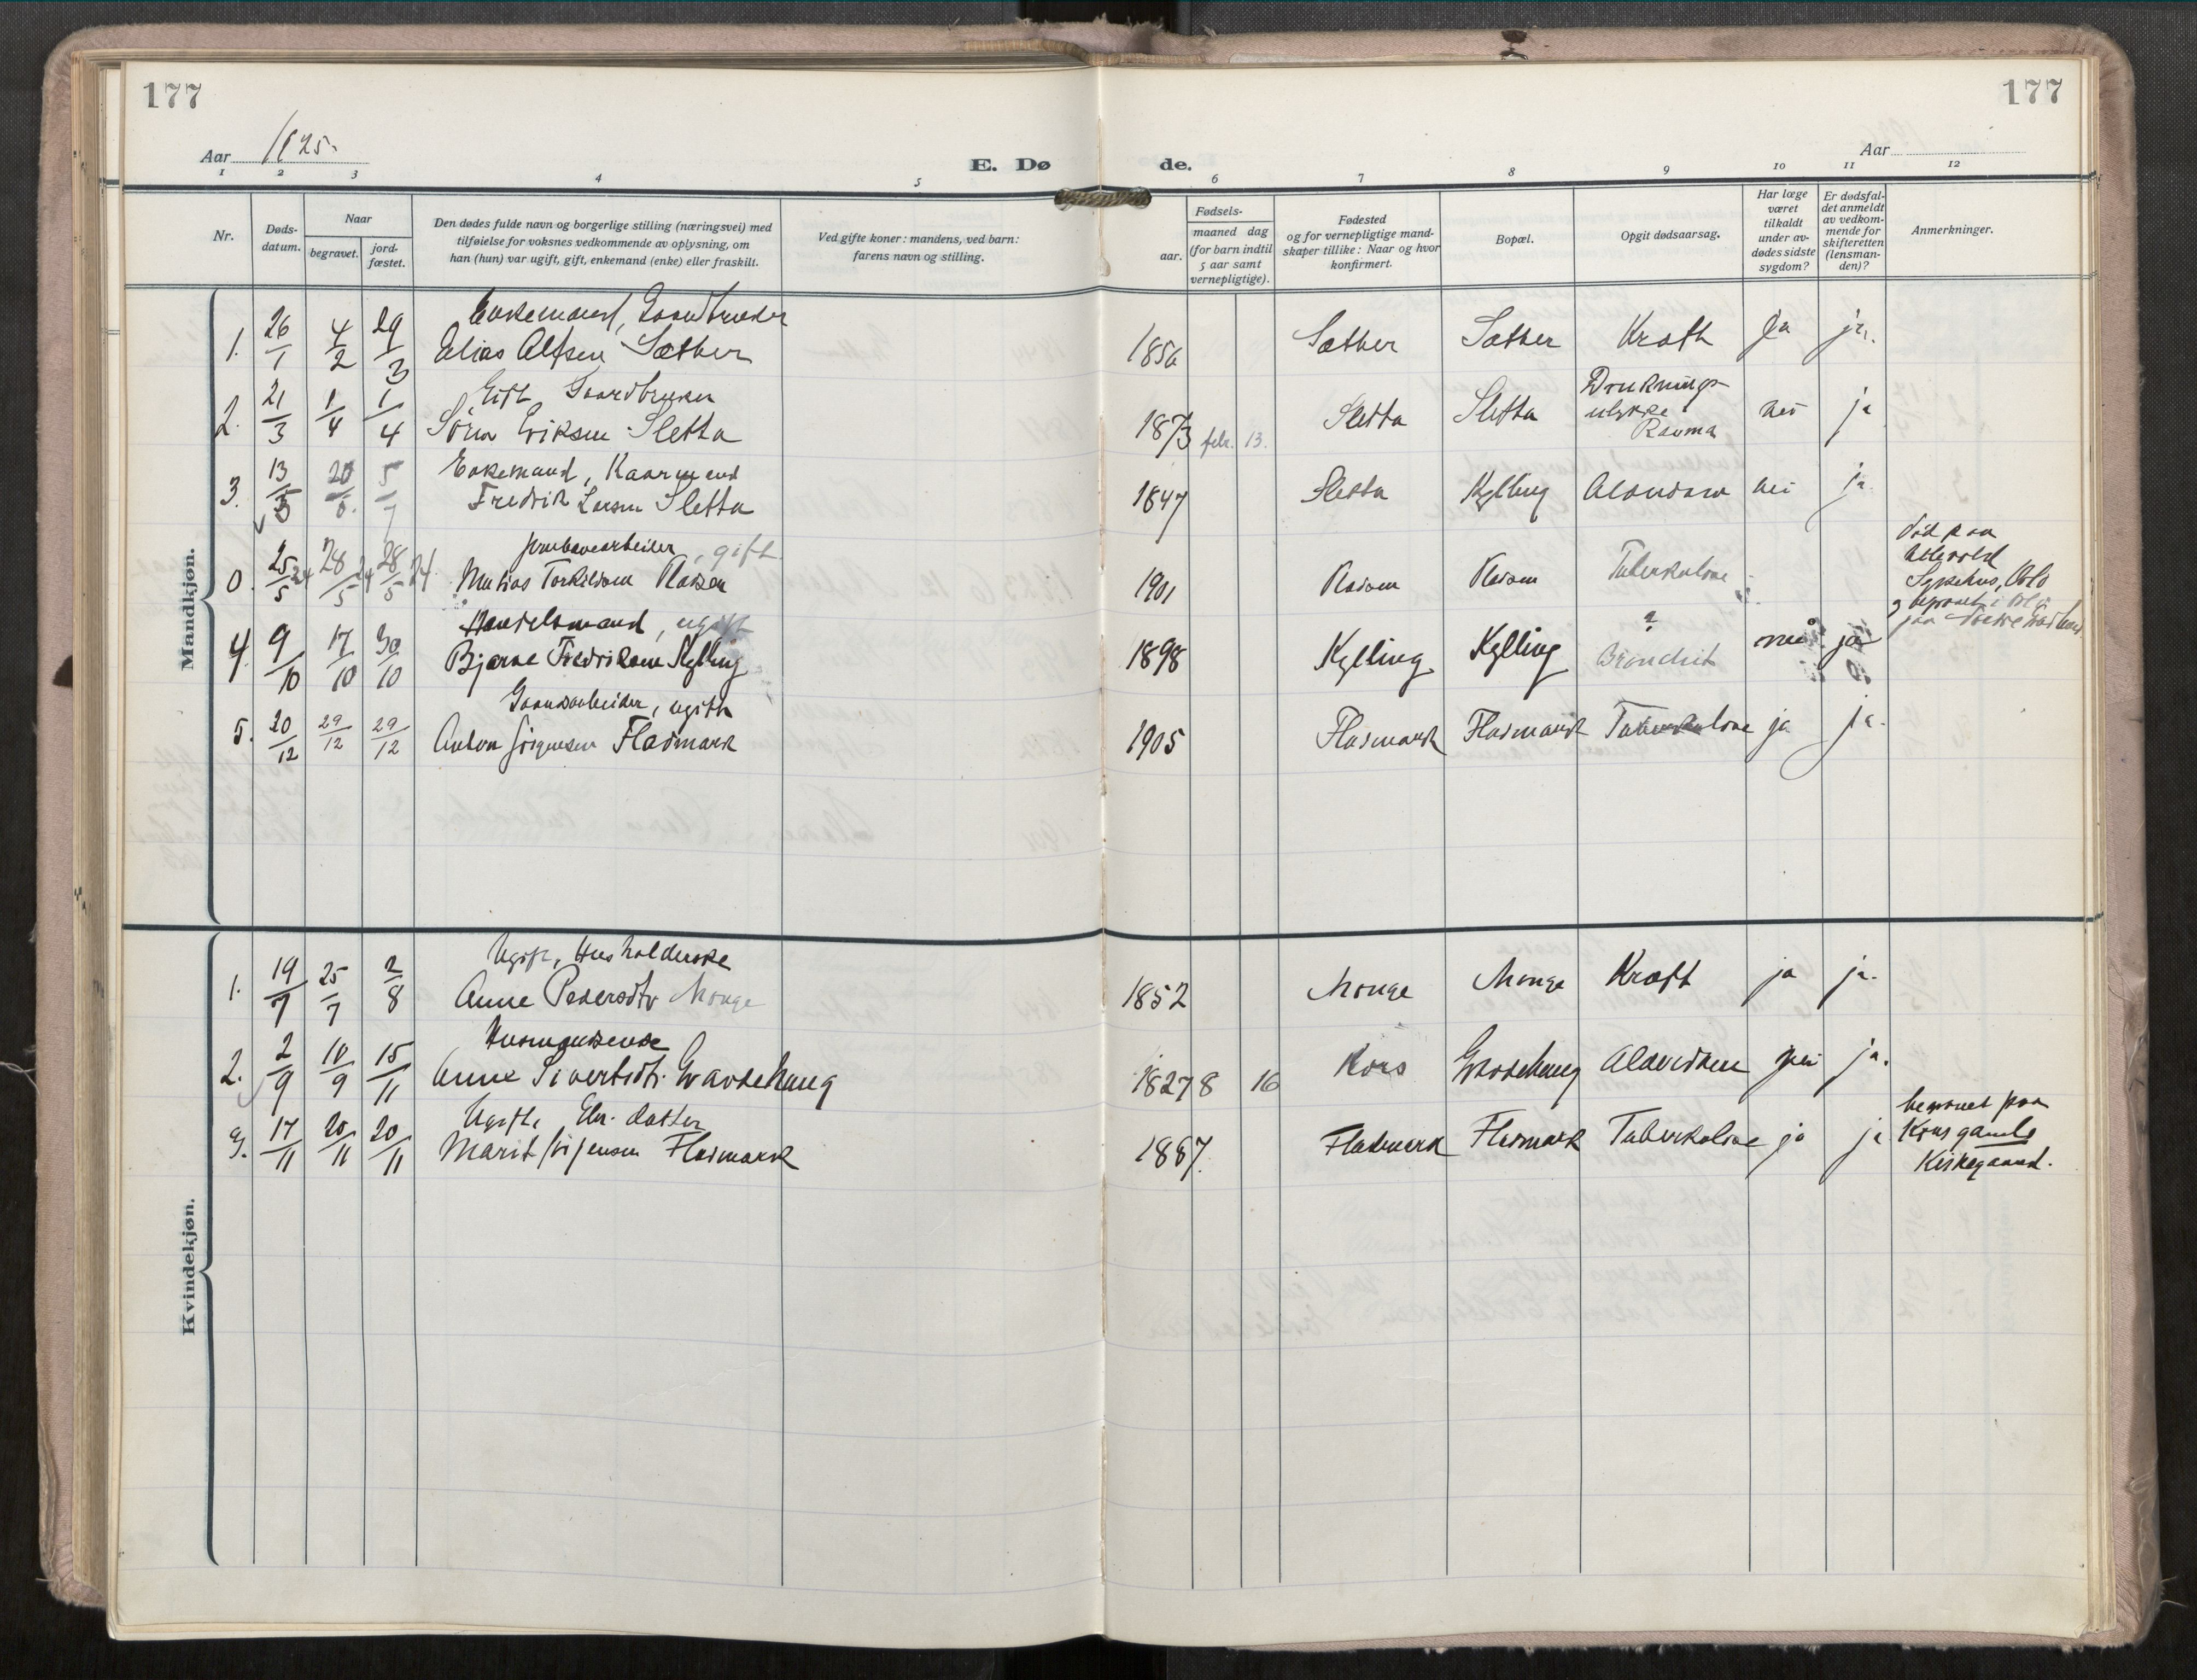 177
177
Aar 1925.
E. Døde.
Aar
1 2 3 4 5 6 7 8 9 10 11 12
Nr.
Døds-
datum.
Naar
begravet.
jord-
fæstet.
Den dødes fulde navn og borgerlige stilling (næringsvei) med
tilføielse for voksnes vedkommende av oplysning, om
han (hun) var ugift, gift, enkemand (enke) eller fraskilt.
Ved gifte koner: mandens, ved barn:
farens navn og stilling.
Fødsels-
aar.
maaned dag
(for barn indtil
5 aar samt
vernepligtige).
Fødested
og for vernepligtige mand-
skaper tillike: Naar og hvor
konfirmert.
Bopæl.
Opgit dødsaarsag.
Har læge
været
tilkaldt
under av-
dødes sidste
sygdom?
Er dødsfal-
det anmeldt
av vedkom-
mende for
skifteretten
(lensman-
den)?
Anmerkninger.
Mandkjøn.
Enkemand, Gaardbruker
1. 26/1 4/2 29/3 Elias Alfsen Sæther 1856 Sæther Sæther Kræft Ja ja.
Gift Gaardbruker
2. 21/3 1/4 1/4 Søren Eriksen Sletta 1873 febr. 13. Sletta Sletta Druknings-
ulykke
Rauma nei ja
Enkemand, Kaarmand
3. 13/5 20/6. 5/7 Fredrik Larsen Sletta 1847 Sletta Kylling Alderdom nei ja
, gift
0. 25/5 24 28/5 24 28/5 24 Matias Torkildsen 1901 Tuberkulose
død paa
Sykehus, Oslo
Handelsmand, ugift
4. 9/10 17/10 30/10 Bjarne Fredriksen Kylling 1898 Kylling Kylling ?
Bronchit nei ja
Gaardsarbeider, ugift
5. 20/12 29/12 29/12 Anton Jørgensen Fladmark 1905 Fladmark Fladmark Tuberkulose ja ja.
Kvindekjøn.
Ugift, Husholderske
1. 19/7 25/7 2/8 Anne Pedersdtr Monge 1852 Monge Monge Kræft ja ja.
Husmandsenke
2. 2/9 10/9 15/11 Anne Sivertsdtr. Gravdehaug 1827 8 16 Kors Gravdehaug Alderdom nei ja.
Ugift, datter
3. 17/11 20/11 20/11 Marit Fladmark 1887. Fladmark Fladmark Tuberkulose ja ja
begravet paa
Kors gamle
Kirkegaard.